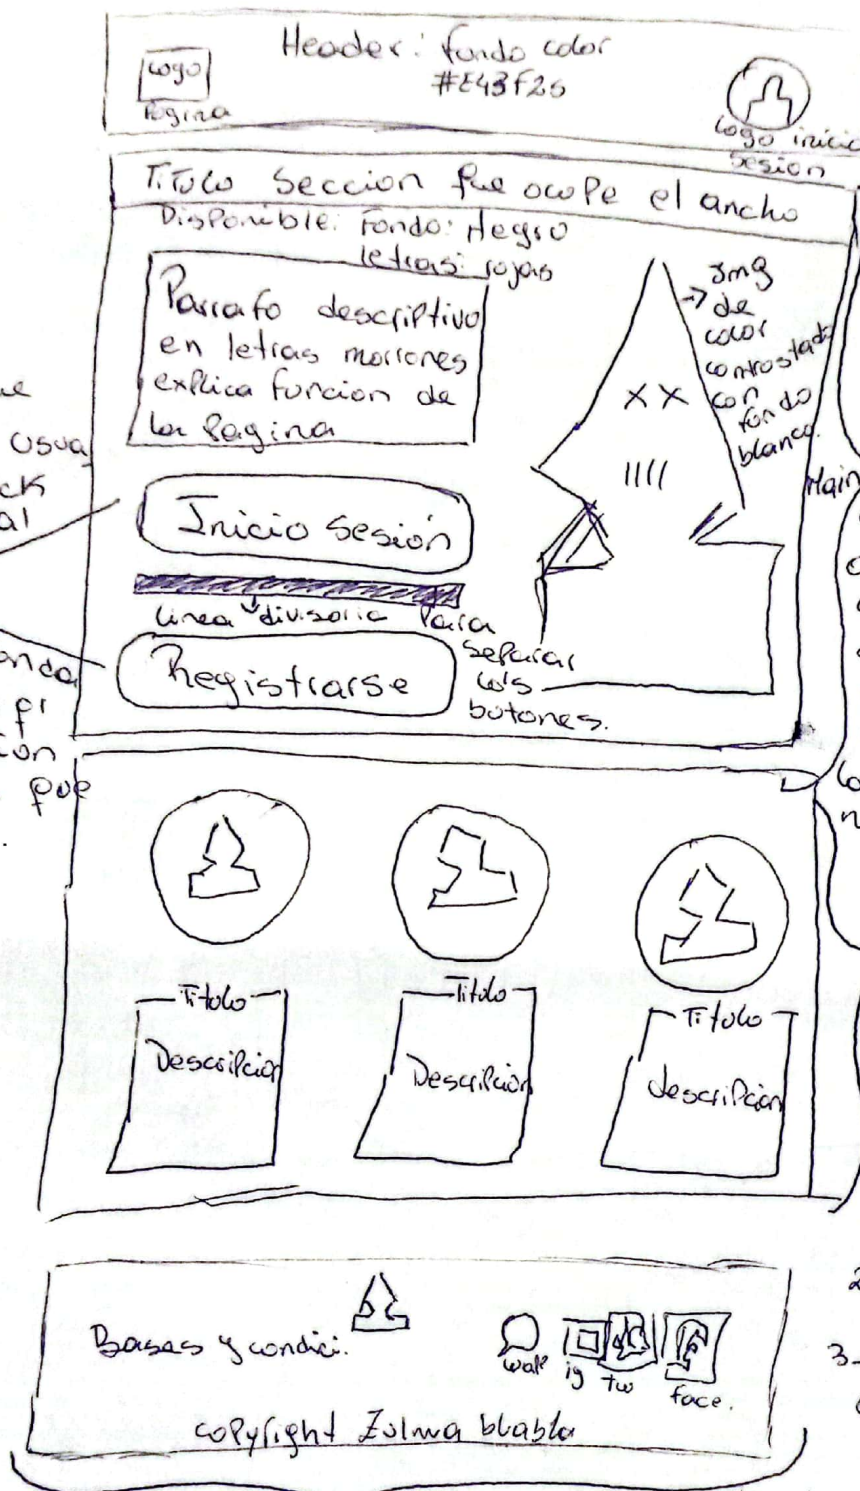 Header: fondo color
#E43F26
Logo
Pagina
Logo inicio
sesion
Titulo Seccion que ocupe el ancho
Disponible: Fondo: Negro
letras: rojas
Parrafo descriptivo
en letras marrones
explica funcion de
la Pagina
Img
de
color
contrastado
con
fondo
blanco.
XX
Inicio Sesión
linea divisoria para
separar
los
botones.
Registrarse
Main
usua
ck
al
que
Titulo
Descripcion
Titulo
Descripcion
Titulo
descripcion
Bases y condici.
ig
tw
face.
copyright Zulma blabla
2
3-